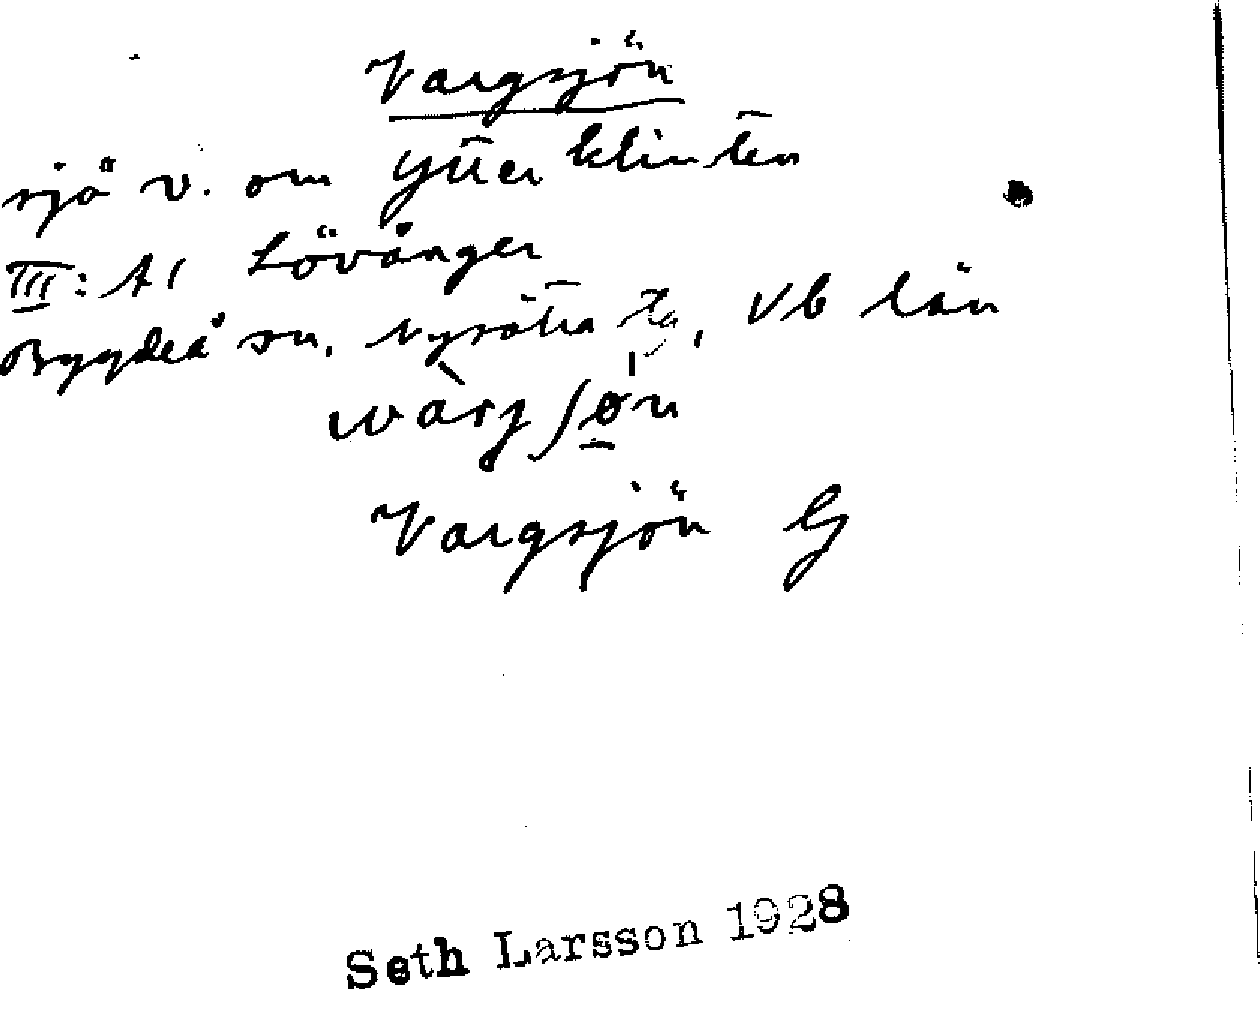 Vargsjön
sjö v. om Ytterklinten
III: A1 Lövånger
Bygdeå sn, Nysätra tg, Vb län
wàrgʃø̱n
Vargsjön G
Seth Larsson 1928